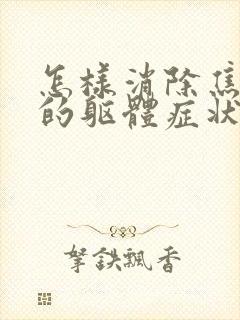 怎樣消除焦
的軀體症狀
拏鉄飄香